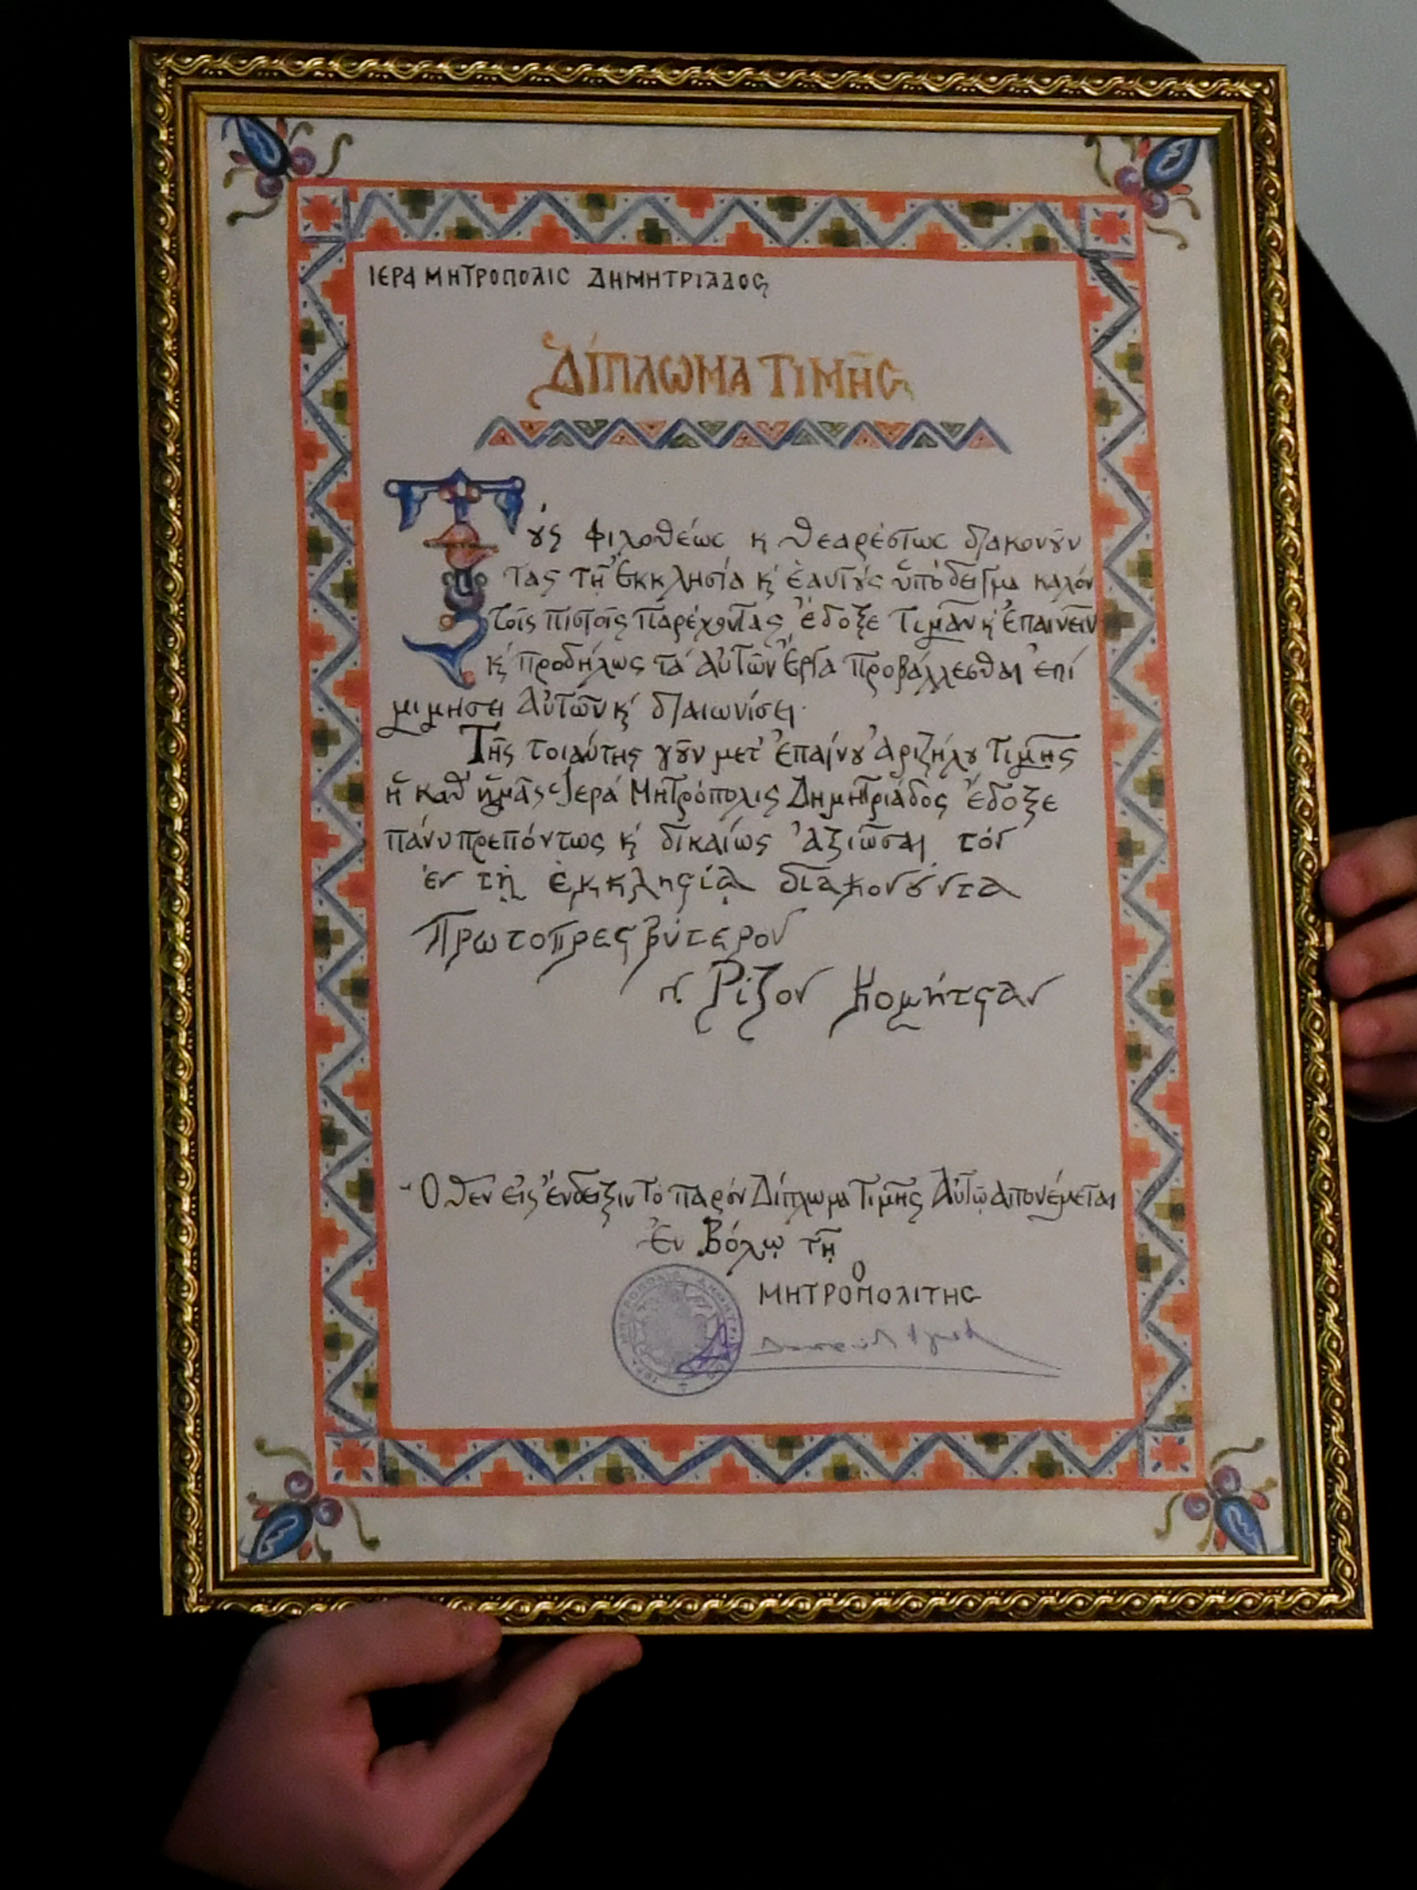 ΙΕΡΑ ΜΗΤΡΟΠΟΛΙϹ ΔΗΜΗΤΡΙΑΔΟς
ΔίΠΛΩΜΑ ΤΙΜΗ͂Ϲ
Τούς φιλοθέως κ θεαρέστως διακονοῦν
τας τῇ Ἐκκλησία κ' ἑαυτούς ὑπόδειγμα καλόν
τοῖς πιστοῖς παρέχοντας ἔδοξε τιμᾶν κ' ἐπαινεῖν
κ' προδήλως τά Αὐτῶν Ἔργα προβάλλεσθαι ἐπί
μιμησει Αὐτῶν κ' διαιωνίσει.
Τῆς τοιαύτης γοῦν μετ' Ἐπαίνου Ἀριζήλου Τιμῆς
ἡ καθ' ἡμᾶς Ἱερά Μητρόπολις Δημητριάδος ἔδοξε
πάνυ πρεπόντως κ' δικαίως ἀξιῶσαι τόν
ἐν τῇ ἐκκλησίᾳ διακονούντα
Πρωτοπρεσβύτερον
π. Ρίζον Κομήτσαν
Ὅθεν εἰς ἔνδειξιν τό παρόν Δίπλωμα Τιμῆς Αὐτῷ ἀπονέμεται
Ἐν Βόλῳ τῇ
Ο
ΜΗΤΡΟΠΟΛΙΤΗϹ
ΙΕΡΑ ΜΗΤΡΟΠΟΛΙΣ ΔΗΜΗΤΡΙΑΔΟΣ